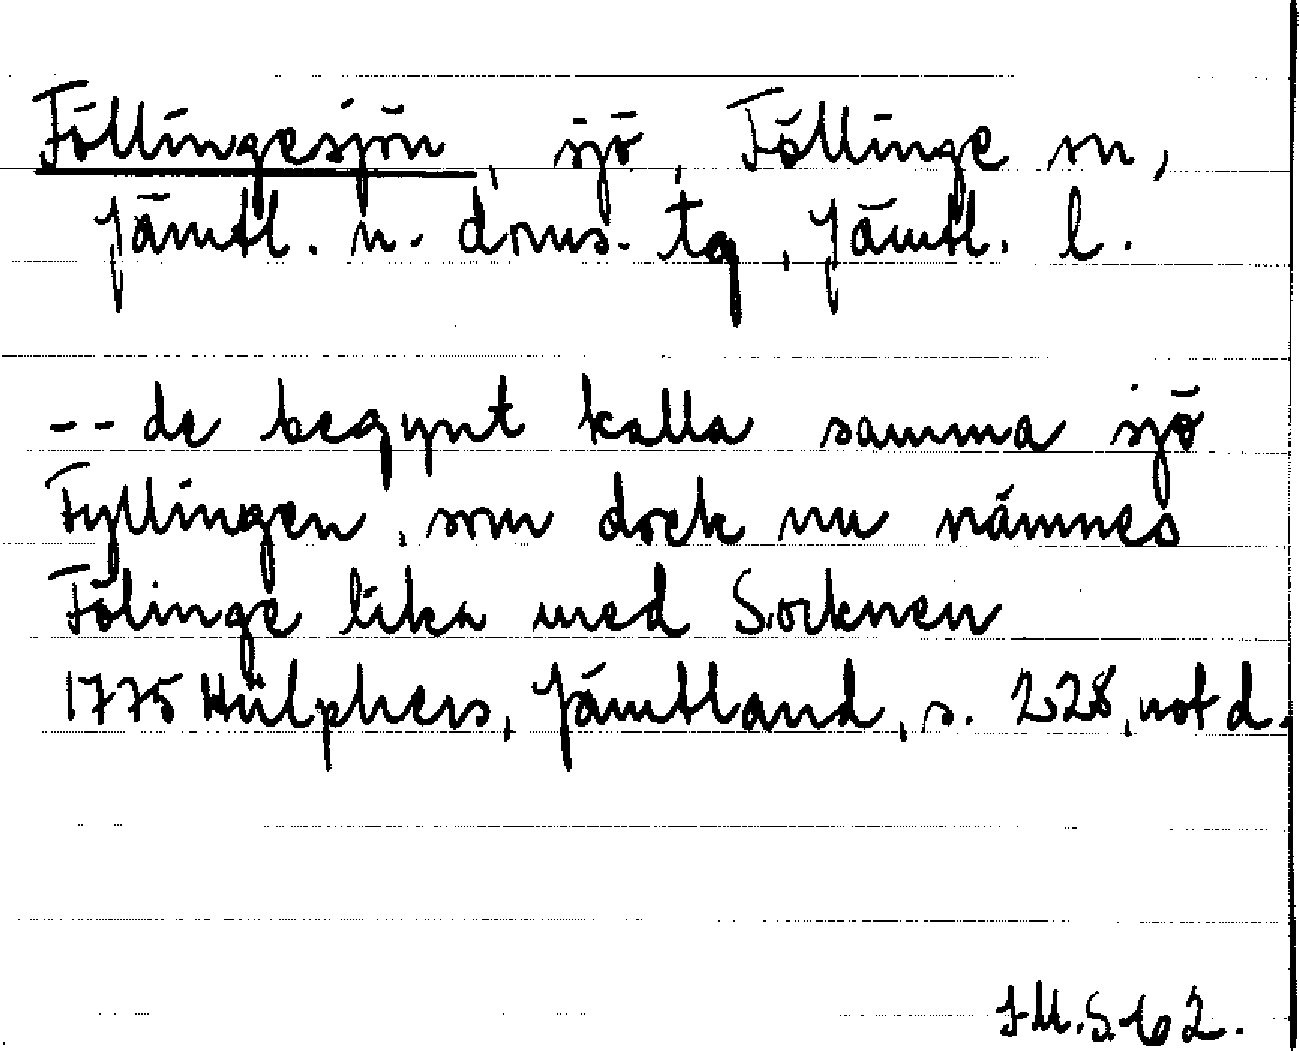 Föllingesjön, sjö, Föllinge sn,
Jämtl. n. doms. tg, Jämtl. l.
-- de begynt kalla samma sjö
Fyllingen, som dock nu nämnes
Fölinge lika med Socknen
1775 Hülphers, Jämtland, s. 228, not d.